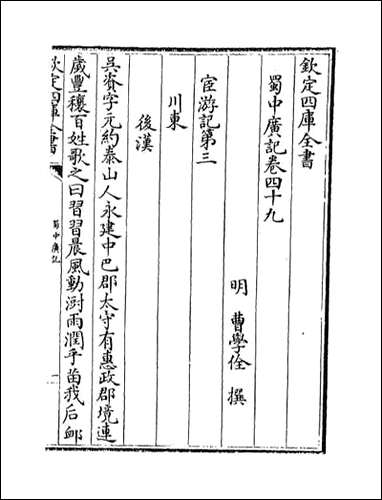 欽定四庫全書
蜀中廣記卷四十九
明 曹學佺 撰
宦游記第三
川東
後漢
吳資字元約泰山人永建中巴郡太守有惠政郡境連
歲豐穰百姓歌之曰習習晨風動澍雨潤乎苗我后卹
欽定四庫全書
蜀中廣記
一